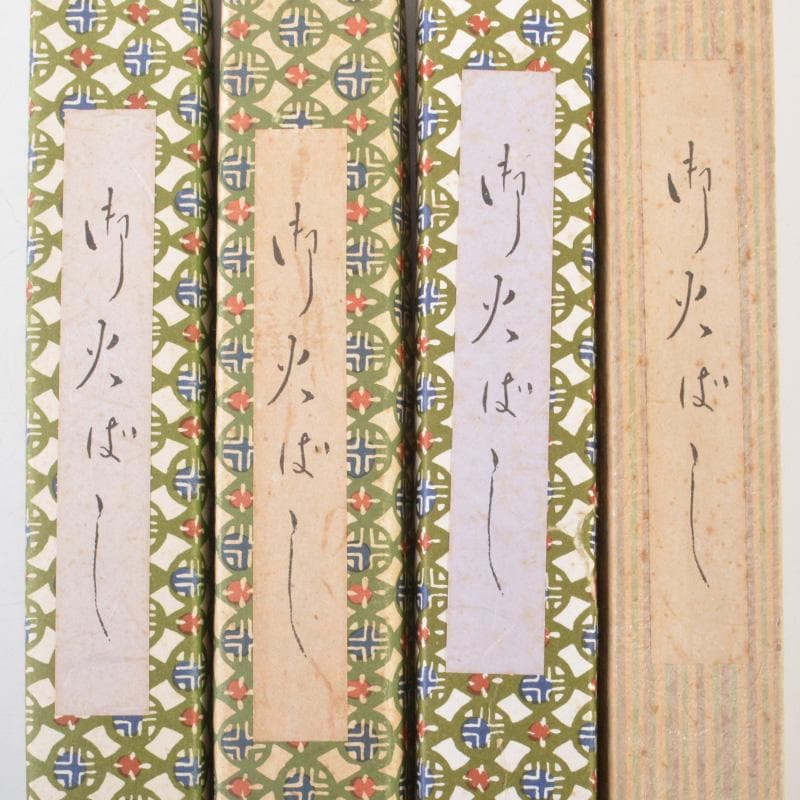 御火ばし
御火ばし
御火ばし
御火ばし